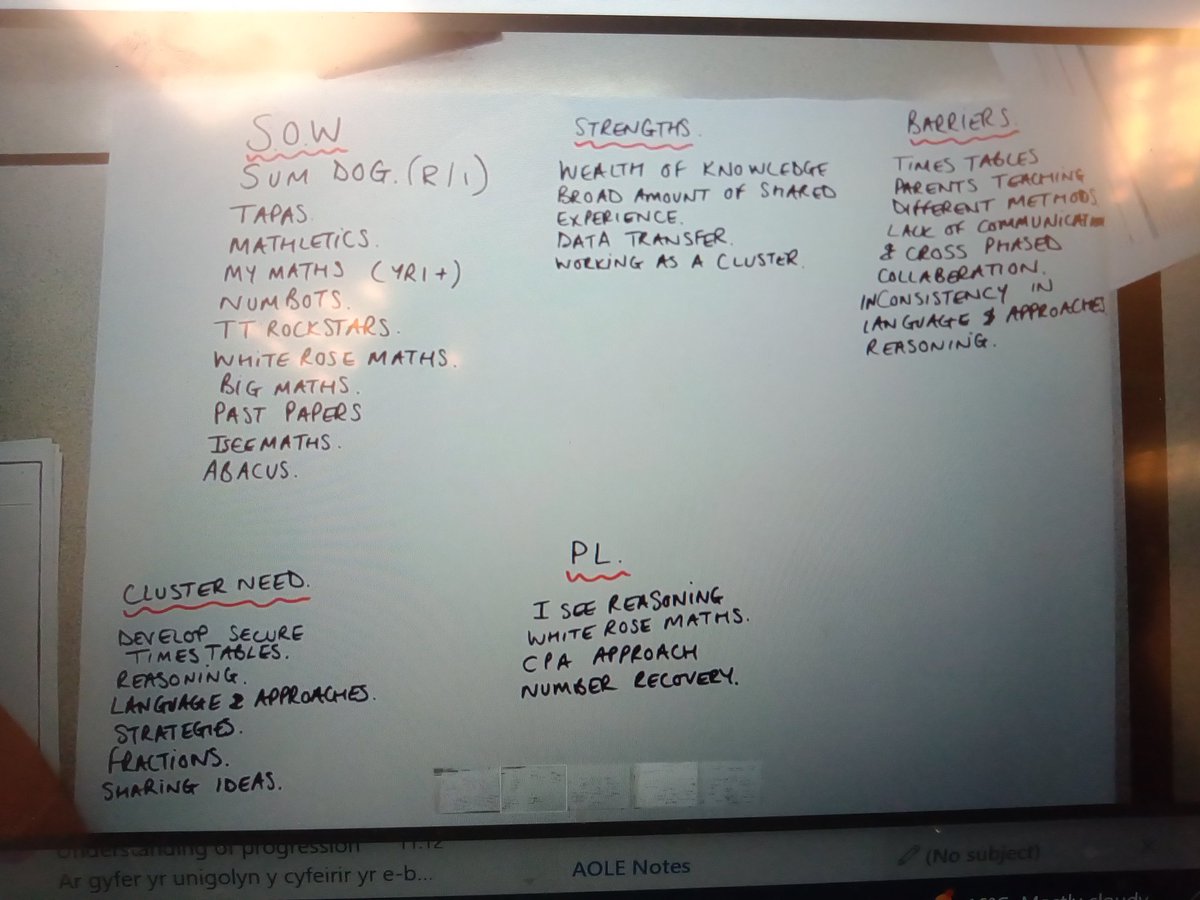 S.O.W
SUM DOG. (R/1)
TAPAS.
MATHLETICS.
MY MATHS (YR1+)
NUMBOTS.
TT ROCKSTARS.
WHITE ROSE MATHS.
BIG MATHS.
PAST PAPERS
ISEEMATHS.
ABACUS.
STRENGTHS.
WEALTH OF KNOWLEDGE
BROAD AMOUNT OF SHARED
EXPERIENCE.
DATA TRANSFER.
WORKING AS A CLUSTER.
BARRIERS.
TIMES TABLES
PARENTS TEACHING
DIFFERENT METHODS
LACK OF COMMUNICATION
& CROSS PHASED
COLLABERATION.
INCONSISTENCY IN
LANGUAGE & APPROACHES
REASONING.
CLUSTER NEED.
DEVELOP SECURE
TIMES TABLES.
REASONING.
LANGUAGE & APPROACHES.
STRATEGIES.
FRACTIONS.
SHARING IDEAS.
PL.
I SEE REASONING
WHITE ROSE MATHS.
CPA APPROACH
NUMBER RECOVERY.
Understanding of progression 11:12
Ar gyfer yr unigolyn y cyfeirir yr e-b...
AOLE Notes
(No subject)
Mostly cloudy